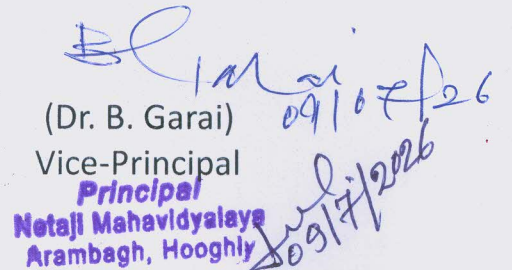 B Garai
09/07/26
(Dr. B. Garai)
Vice-Principal
Principal
Netaji Mahavidyalaya
Arambagh, Hooghly
09/7/2026